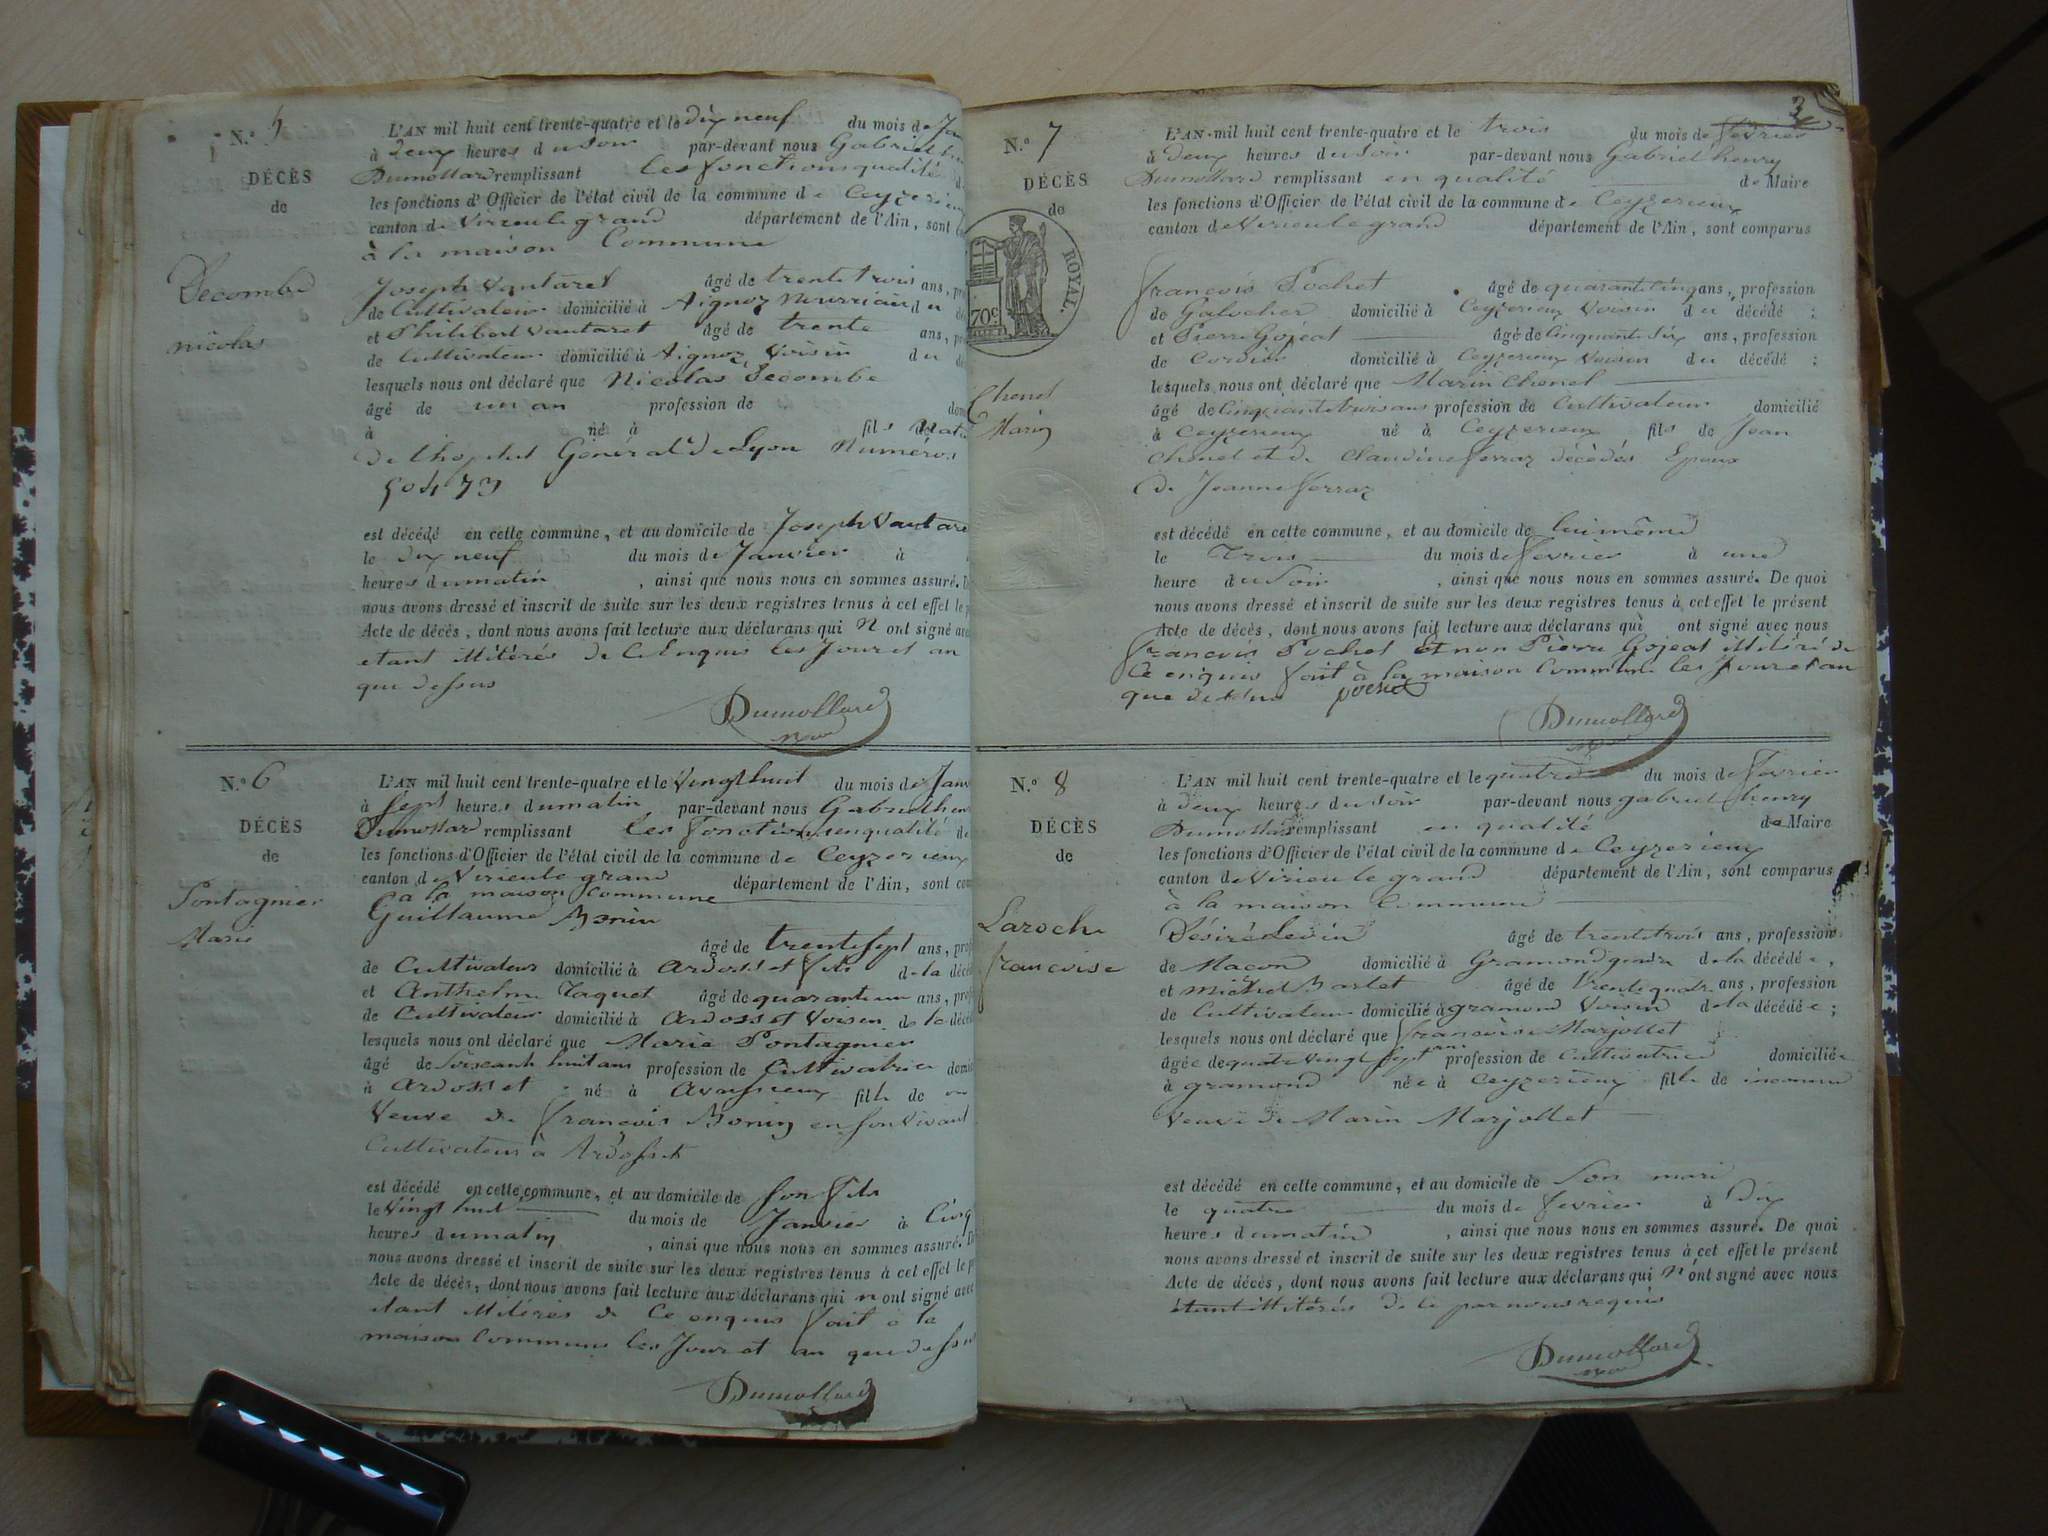 N.º 5
DÉCÈS
de
Decombe
nicolas
L'AN mil huit cent trente-quatre et le dix neuf du mois de
à deux heures du soir par-devant nous Gabriel
Dumollard remplissant les fonctions qualité
les fonctions d'Officier de l'état civil de la commune de Ceyzerieu
canton de Virieu le grand département de l'Ain, sont
à la maison Commune
Joseph Vautaret âgé de trente trois ans,
de Cultivateur domicilié à Aignoz nourricier du
et Philibert Vautaret âgé de trente ans,
de Cultivateur domicilié à Aignoz Voisin du
lesquels nous ont déclaré que Nicolas Decombe
âgé de un an profession de
à né à fils
de l'hopital Général de Lyon Numéros
50473
est décédé en cette commune, et au domicile de Joseph
le dix neuf du mois de Janvier à
heures du matin, ainsi que nous nous en sommes assuré.
nous avons dressé et inscrit de suite sur les deux registres tenus à cet effet le
Acte de décès, dont nous avons fait lecture aux déclarans qui n ont signé
etant illitérés de Ce Enquis les Jour et an
que dessus
Dumollard
N.º 6
DÉCÈS
de
Pontagnier
Marie
L'AN mil huit cent trente-quatre et le Vingt huit du mois de
à Sept heures du matin par-devant nous Gabriel
Dumollard remplissant les fonctions en qualité de
les fonctions d'Officier de l'état civil de la commune de Ceyzerieux
canton de Virieu le grand département de l'Ain, sont
à la maison Commune
Guillaume Bonin
âgé de trente Sept ans,
de Cultivateur domicilié à ardosset fils de la
et Anthelme Taquet âgé de quarante un ans,
de Cultivateur domicilié à ardosset Voisin de la
lesquels nous ont déclaré que Marie Pontagnier
âgé de Soixante huit ans profession de Cultivatrice
à ardosset né à fille de
Veuve de francois Bonin en son Vivant
Cultivateur à Ardosset
est décédé en cette commune, et au domicile de son fils
le Vingt huit du mois de Janvier à Cinq
heures du matin, ainsi que nous nous en sommes assuré.
nous avons dressé et inscrit de suite sur les deux registres tenus à cet effet le
Acte de décès, dont nous avons fait lecture aux déclarans qui n ont signé
etant illitérés de Ce enquis fait à la
maison Commune les Jour et an que dessus
Dumollard
3
N.º 7
DÉCÈS
de
ROYAL.
70c
Chenel
Marin
L'AN mil huit cent trente-quatre et le trois du mois de fevrier
à deux heures du soir par-devant nous Gabriel henry
Dumollard remplissant en qualité de Maire
les fonctions d'Officier de l'état civil de la commune de Ceyzerieux
canton de Virieu le grand département de l'Ain, sont comparus
francois Pochet âgé de quarante cinq ans, profession
de Galocher domicilié à Ceyzerieux Voisin du décédé;
et Pierre Gojeat âgé de Cinquante Six ans, profession
de domicilié à Ceyzerieux Voisin du décédé;
lesquels nous ont déclaré que Marin Chenel
âgé de Cinquante trois ans profession de Cultivateur domicilié
à Ceyzerieux né à Ceyzerieux fils de Jean
Chenel et de Claudine ferraz décédés Epoux
de Jeanne ferraz
est décédé en cette commune, et au domicile de lui même
le Trois du mois de fevrier à une
heure du Soir, ainsi que nous nous en sommes assuré. De quoi
nous avons dressé et inscrit de suite sur les deux registres tenus à cet effet le présent
Acte de décès, dont nous avons fait lecture aux déclarans qui ont signé avec nous
francois Pochet et non Pierre Gojeat illitéré de
Ce enquis fait à la maison Commune les Jour et an
que dessus pochet
Dumollard
N.º 8
DÉCÈS
de
Laroche
francoise
L'AN mil huit cent trente-quatre et le quatre du mois de fevrier
à deux heures du soir par-devant nous gabriel henry
Dumollard remplissant en qualité de Maire
les fonctions d'Officier de l'état civil de la commune de Ceyzerieux
canton de Virieu le grand département de l'Ain, sont comparus
à la maison Commune
Désiré Levin âgé de trente trois ans, profession
de Macon domicilié à Gramond de la décédée,
et Michel Barlet âgé de trente quatre ans, profession
de Cultivateur domicilié à gramond Voisin de la décédée;
lesquels nous ont déclaré que francoise Marjollet
âgée de quatre Vingt Sept ans profession de Cultivatrice domiciliée
à gramond née à Ceyzerieux fille de inconnu
Veuve de Marin Marjollet
est décédé en cette commune, et au domicile de Son mari
le quatre du mois de fevrier à Dix
heures du matin, ainsi que nous nous en sommes assuré. De quoi
nous avons dressé et inscrit de suite sur les deux registres tenus à cet effet le présent
Acte de décès, dont nous avons fait lecture aux déclarans qui n ont signé avec nous
étant illitérés de ce par nous requis
Dumollard